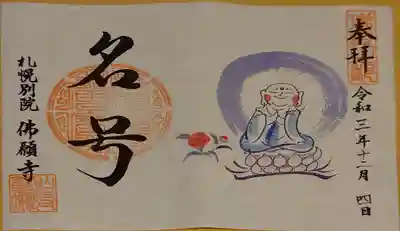 奉拝
令和三年十二月四日
名号
札幌別院 佛願寺